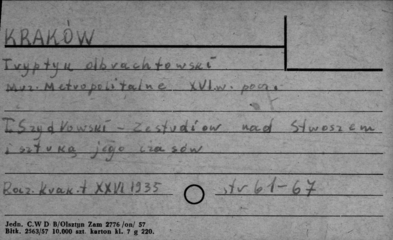 KRAKÓW
Tryptyk olbrachtowski
Muz. Metropolitalne XVI.w. pocz.
T. Szydłowski - Ze studiów nad Stwoszem
i sztuką jego czasów
Rocz. Krak. t XXVI 1935 str 61-67
Jedn. C.W D B/Olsztyn Zam 2776/on/ 57
Bltk. 2563/57 10.000 szt. karton kl. 7 g 220.